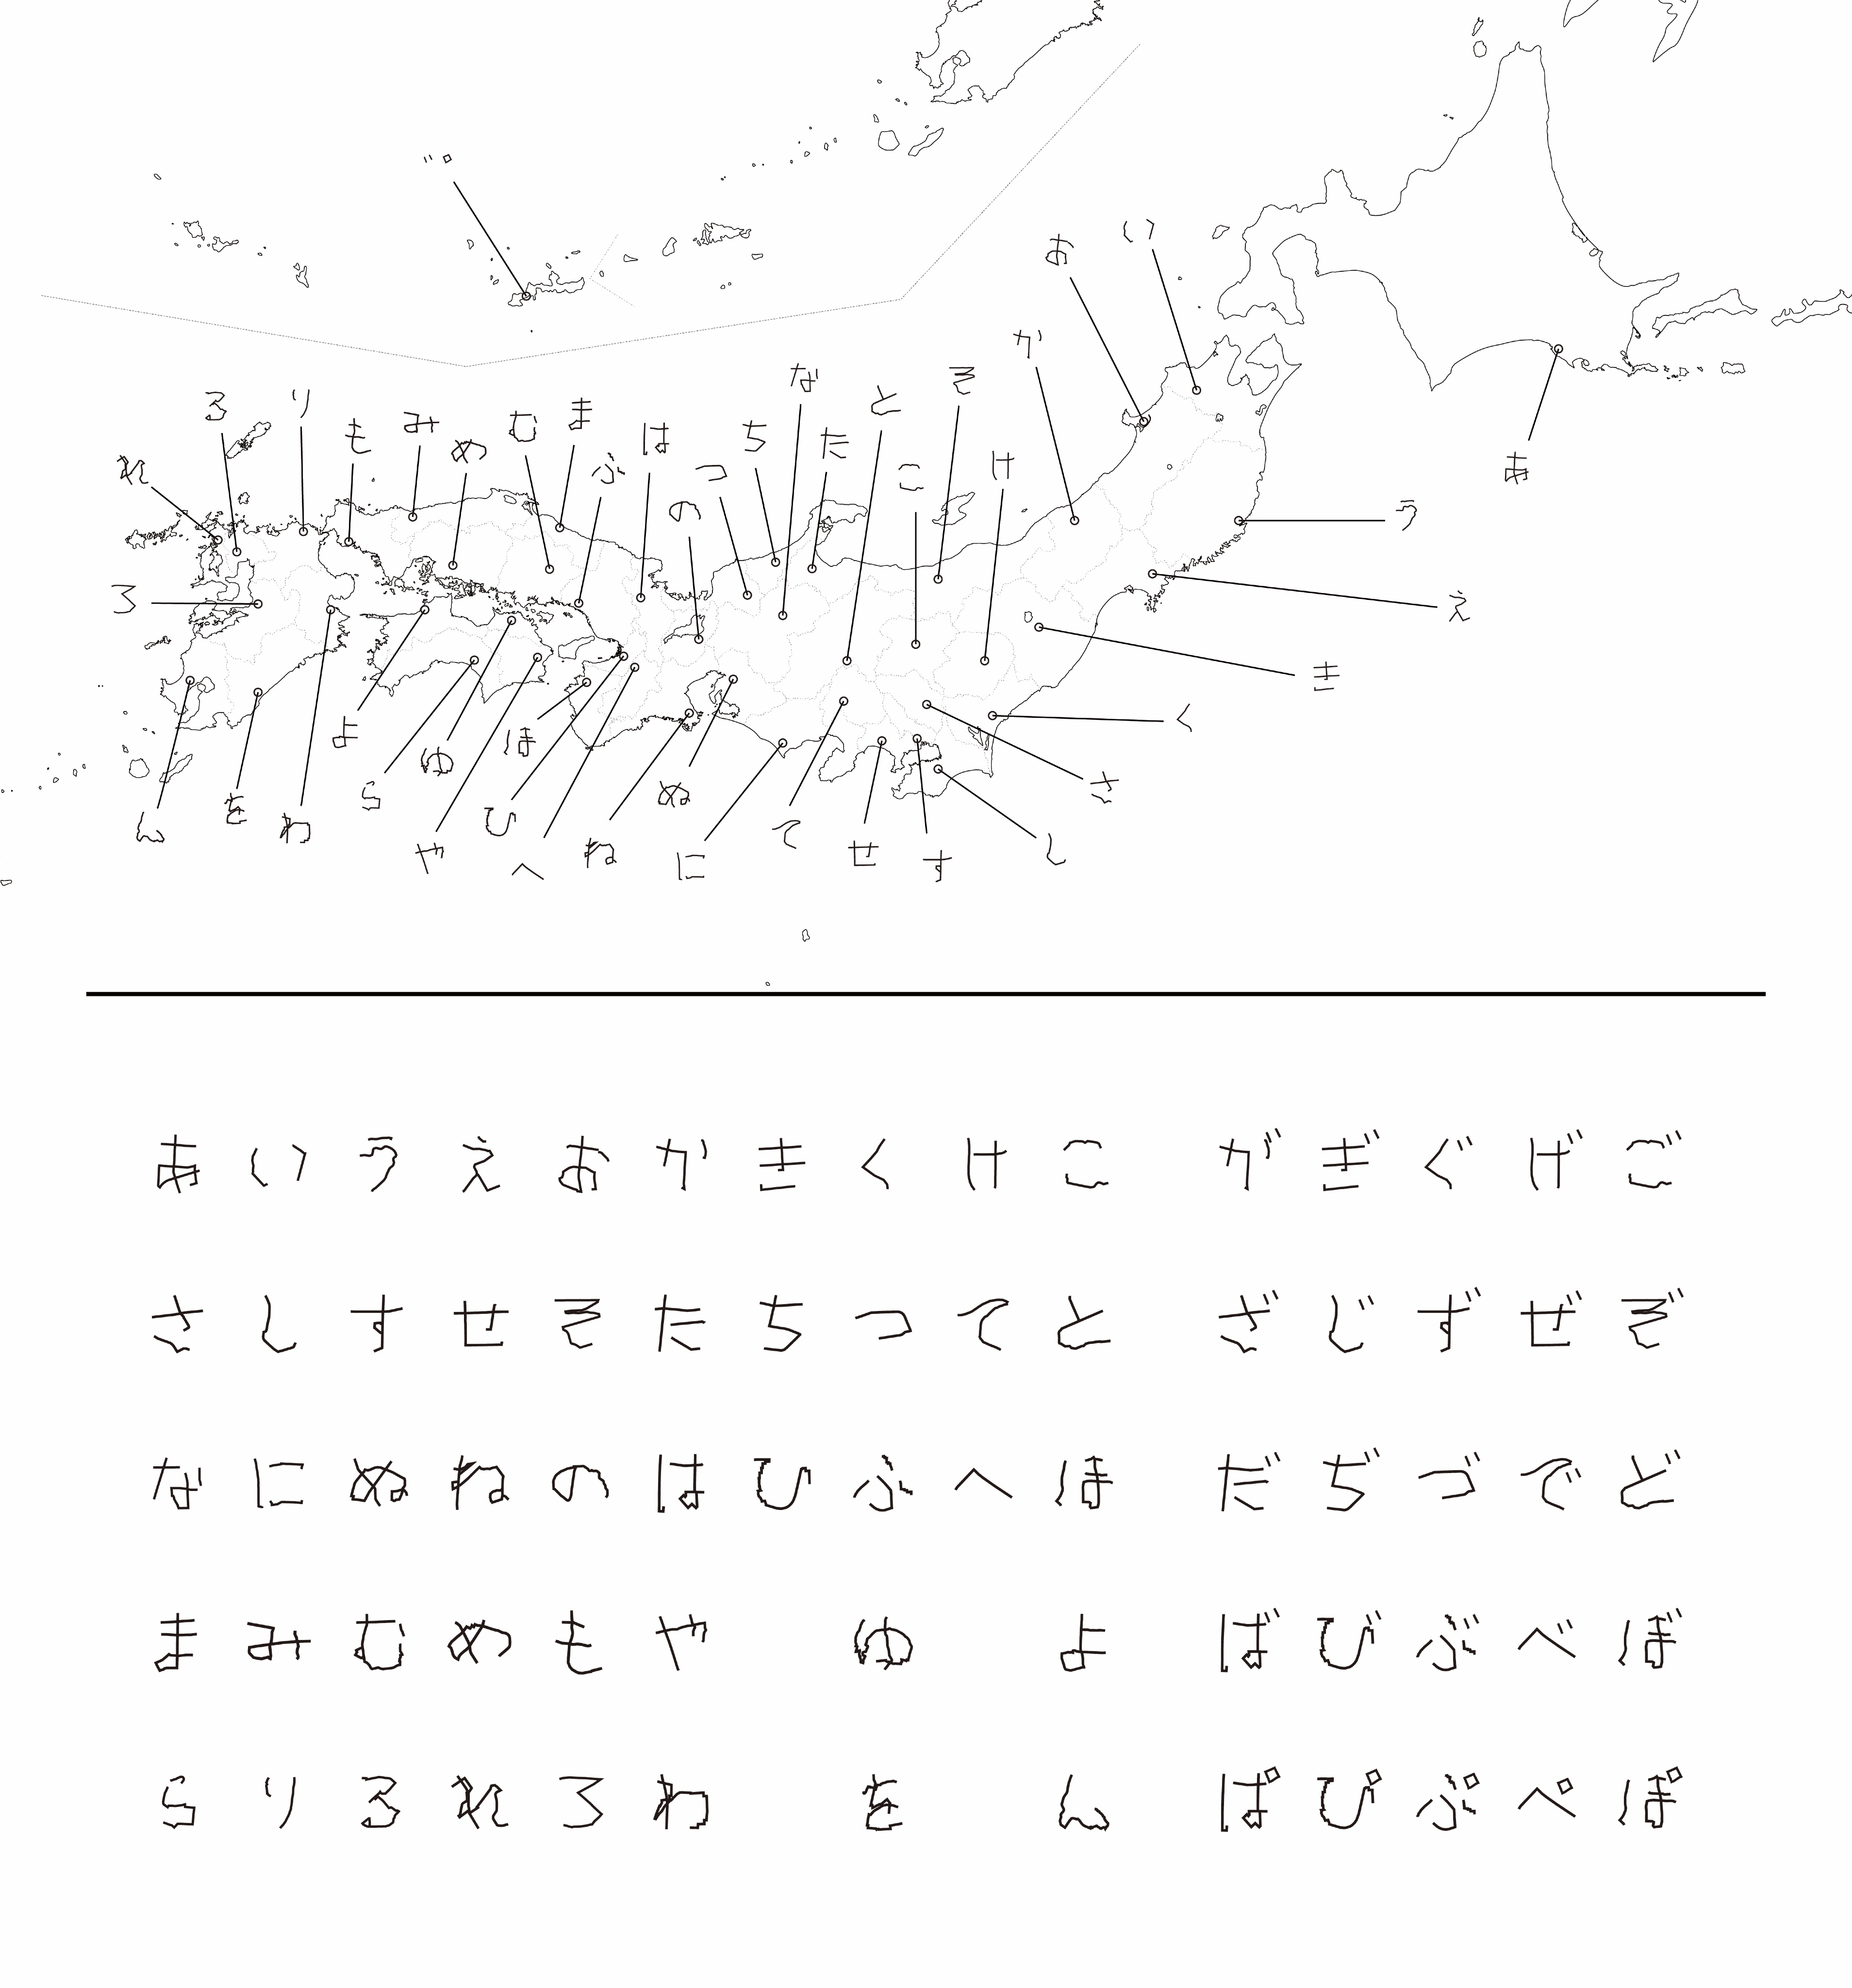 ゛゜
い
お
か
な
そ
ろ
り
と
も
み
ま
む
ち
た
め
は
ふ
れ
つ
こ
け
あ
の
う
ろ
え
き
よ
ほ
く
ゆ
ら
ぬ
さ
を
ひ
ん
わ
て
や
ね
せ
し
へ
に
す
あいうえおかきくけこ がぎぐげご
さしすせそたちつてと ざじずぜぞ
なにぬねのはひふへほ だぢづでど
まみむめもや ゆ よ ばびぶべぼ
らりるれろわ を ん ぱぴぷぺぽ